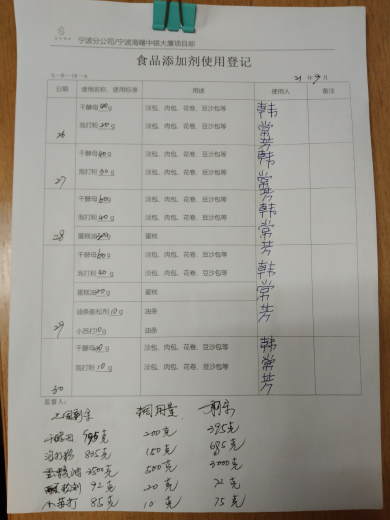 宁波分公司/宁波海曙中银大厦项目部
食品添加剂使用登记
21年9月
日期 使用名称、使用标准 用途 使用人 备注
干酵母40g 淡包、肉包、花卷、豆沙包等 韩
26 泡打粉20g 淡包、肉包、花卷、豆沙包等 常芳
干酵母40g 淡包、肉包、花卷、豆沙包等 韩
27 泡打粉30g 淡包、肉包、花卷、豆沙包等 常芳
干酵母60g 淡包、肉包、花卷、豆沙包等 韩
泡打粉40g 淡包、肉包、花卷、豆沙包等 常
28 蛋糕油 蛋糕 芳
干酵母60g 淡包、肉包、花卷、豆沙包等 韩
泡打粉40g 淡包、肉包、花卷、豆沙包等
蛋糕油20g 蛋糕 常
油条膨松剂10g 油条 芳
29 小苏打10g 油条
干酵母 g 淡包、肉包、花卷、豆沙包等 韩
30 泡打粉10g 淡包、肉包、花卷、豆沙包等 常芳
监督人：
上周剩余 本周用量 剩余
干酵母 595克 200克 395克
泡打粉 835克 150克 685克
蛋糕油 3500克 500克 3000克
92克 20克 72克
小苏打 85克 10克 75克